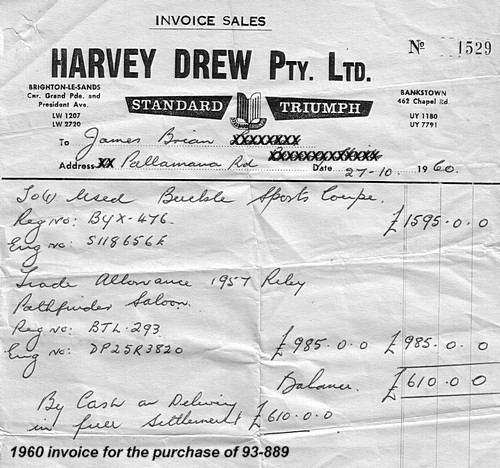 INVOICE SALES
Nº 1529
HARVEY DREW PTY. LTD.
BRIGHTON-LE-SANDS
Cnr. Grand Pde. and
President Ave.
LW 1207
LW 2720
STANDARD TRIUMPH
BANKSTOWN
462 Chapel Rd.
UY 1180
UY 7791
To James Brian
Address Pallamana Rd Date 27-10. 1960.
To (1) Used Buckle Sports Coupe.
Reg No: BYX-476. £1595.0.0
Eng No: S118656E
Trade Allowance 1957 Riley
Pathfinder Saloon.
Reg No: BTL-293.
Eng No: DP25R3820 £985.0.0 £985.0.0
Balance. £610.0.0
By Cash on Delivery
in full Settlement £610.0.0
1960 invoice for the purchase of 93-889